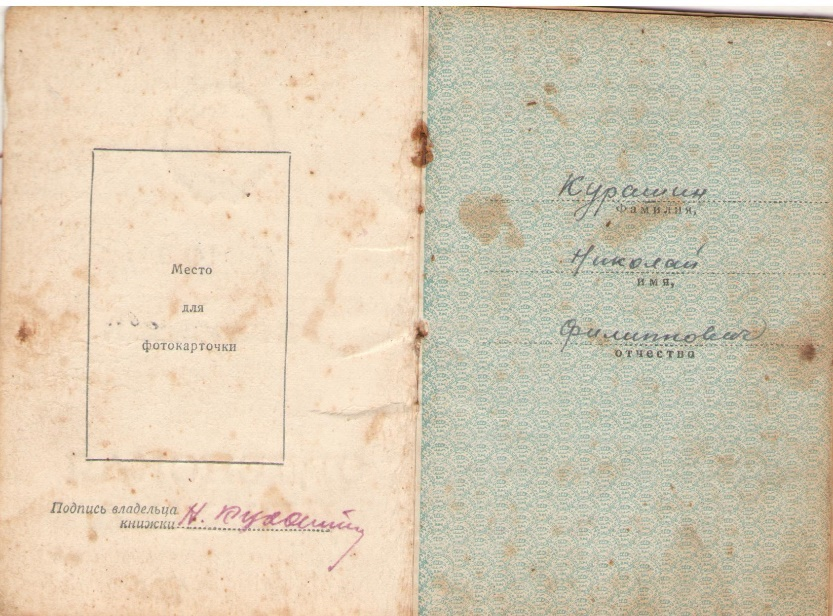 Место
для
фотокарточки
Подпись владельца
книжки Н. Курашин
Курашин
Фамилия,
Николай
имя,
Филиппович
отчество